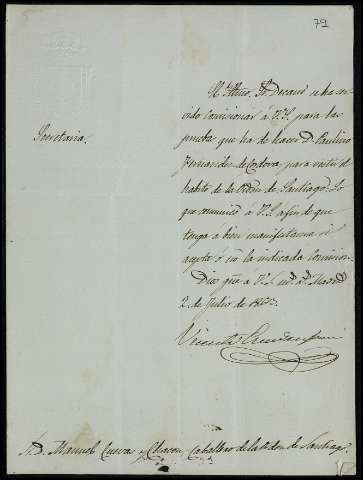 79
Secretaria.
El Excmo. Sr. Decano se ha ser-
vido comisionar á V.S. para las
pruebas que ha de hacer D. Paulino
Fernandez de Cordova para vestir el
habito de la Orden de Santiago. Lo
que comunico á V.S. á fin de que
tenga á bien manifestarme si
acepta ó no la indicada comision.
Dios gue á V.S. ms. as. Madrid
2 de Julio de
Vicente
S. D. Manuel Cueva y Chacon Caballero de la Orden de Santiago.